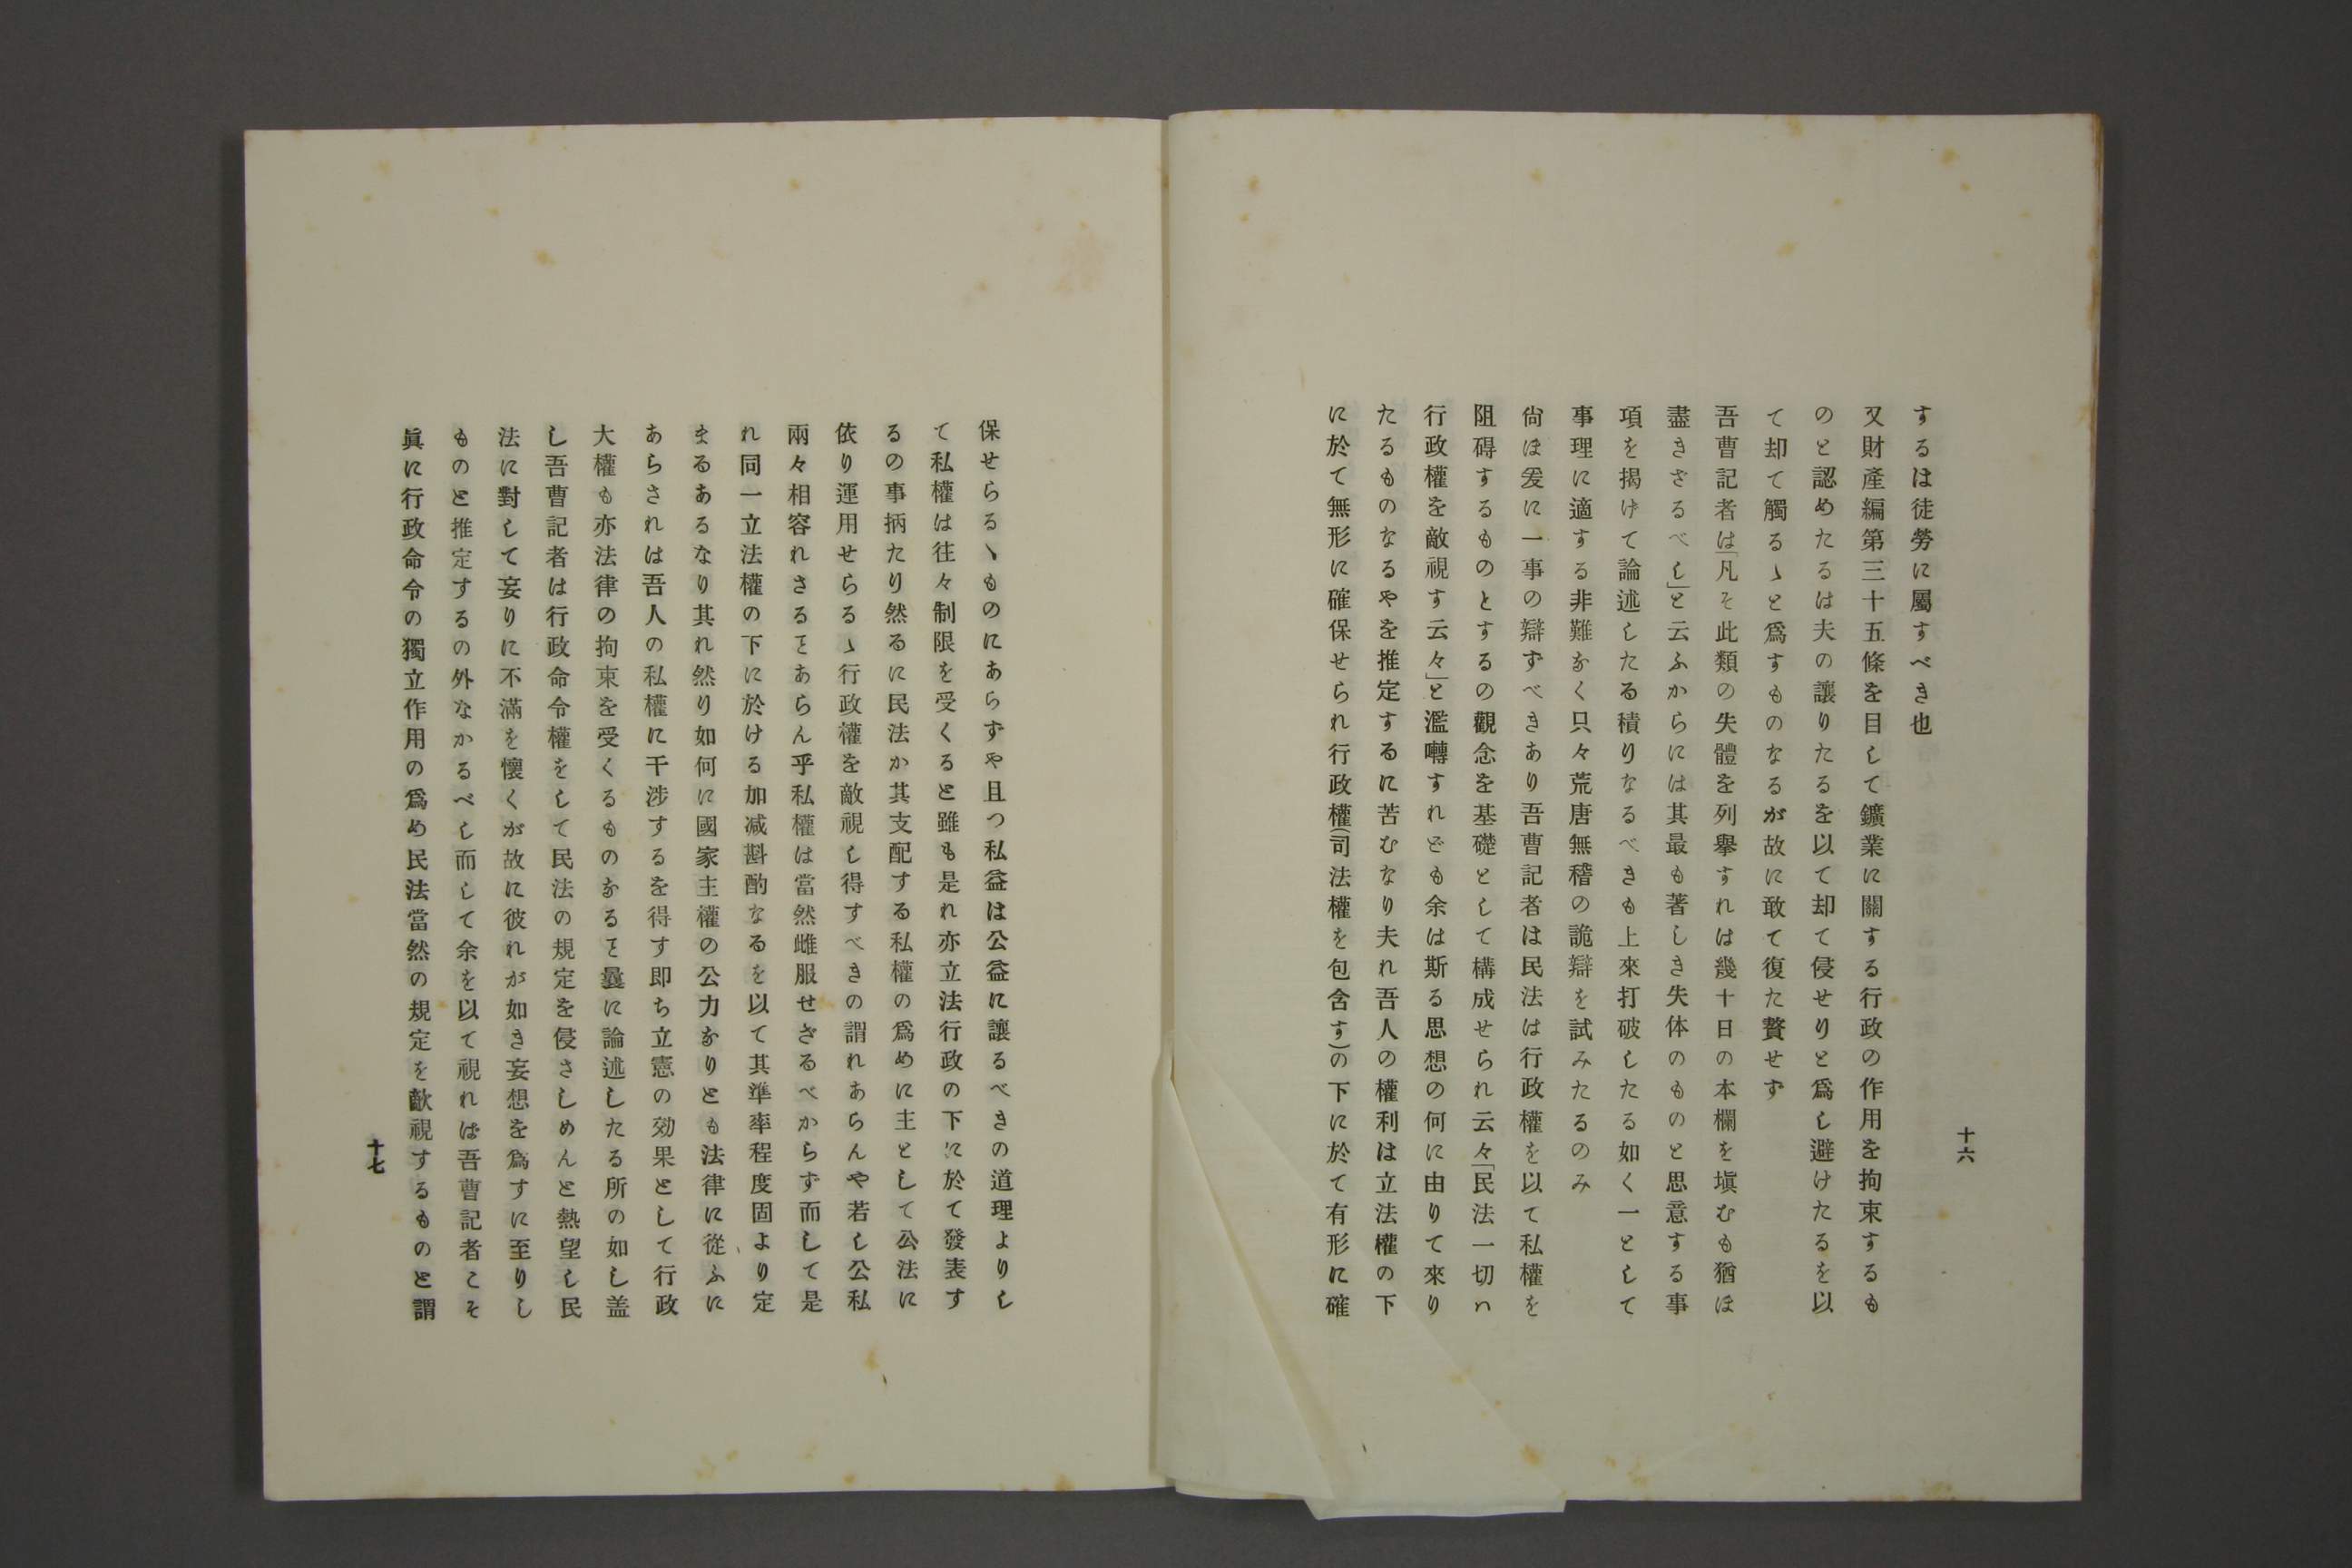 十六
するは徒勞に屬すべき也
又財產編第三十五條を目して鑛業に關する行政の作用を拘束するも
のと認めたるは夫の讓りたるを以て却て侵せりと爲し避けたるを以
て却て觸るゝと爲すものなるが故に敢て復た贅せず
吾曹記者は「凡そ此類の失體を列擧すれは幾十日の本欄を塡むも猶ほ
盡きざるべし」と云ふからには其最も著しき失体のものと思意する事
項を揭げて論述したる積りなるべきも上來打破したる如く一として
事理に適する非難なく只々荒唐無稽の詭辯を試みたるのみ
尙ほ爰に一事の辯ずべきあり吾曹記者は民法は行政權を以て私權を
阻碍するものとするの觀念を基礎として構成せられ云々「民法一切ハ
行政權を敵視す云々」と濫囀すれども余は斯る思想の何に由りて來り
たるものなるやを推定するに苦むなり夫れ吾人の權利は立法權の下
に於て無形に確保せられ行政權(司法權を包含す)の下に於て有形に確
保せらるゝものにあらずや且つ私益は公益に讓るべきの道理よりし
て私權は往々制限を受くると雖も是れ亦立法行政の下に於て發表す
るの事柄たり然るに民法か其支配する私權の爲めに主として公法に
依り運用せらるゝ行政權を敵視し得すべきの謂れあらんや若し公私
兩々相容れさるヿあらん乎私權は當然雌服せざるべからず而して是
れ同一立法權の下に於ける加减斟酌なるを以て其準率程度固より定
まるあるなり其れ然り如何に國家主權の公力なりとも法律に從ふに
あらされは吾人の私權に干涉するを得す即ち立憲の効果として行政
大權も亦法律の拘束を受くるものなるヿ曩に論述したる所の如し盖
し吾曹記者は行政命令權をして民法の規定を侵さしめんと熱望し民
法に對して妄りに不滿を懷くが故に彼れが如き妄想を爲すに至りし
ものと推定するの外なかるべし而して余を以て視れば吾曹記者こそ
眞に行政命令の獨立作用の爲め民法當然の規定を敵視するものと謂
十七